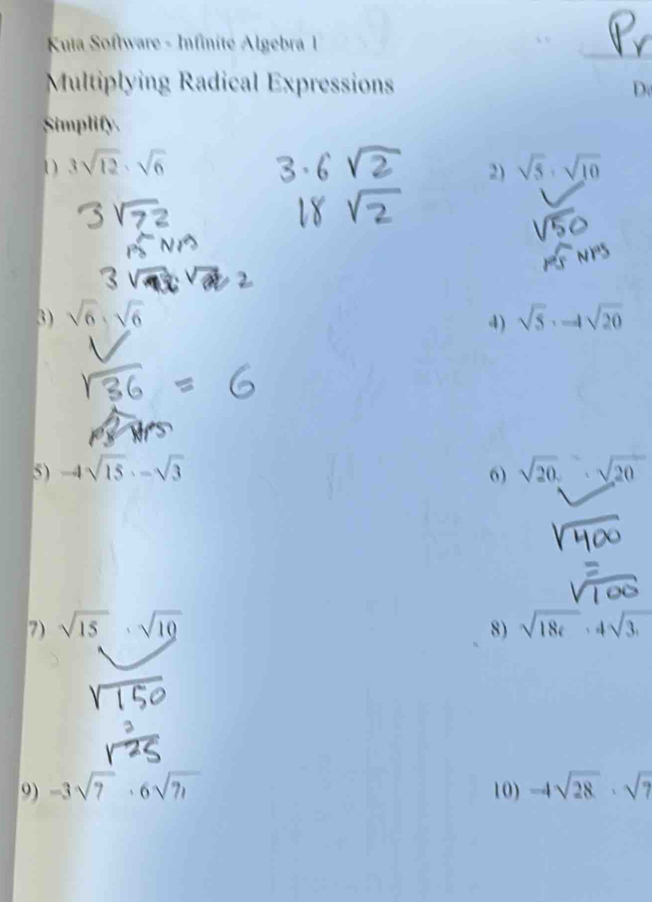 Kuta Software - Infinite Algebra 1
Pr
Multiplying Radical Expressions
Da
Simplify.
1) 3√12 · √6
3√72
PS NPS
3 √ √ 2
3·6 √2
18 √2
2) √5 · √10
√50
PS NPS
3) √6 · √6
√36 = 6
PS NPS
4) √5 · -4√20
5) -4√15 · -√3
6) √20 · √20
√400
=
√100
7) √15 · √10
√150
3
√25
8) √18 · 4√3
9) -3√7 · 6√7
10) -4√28 · √7